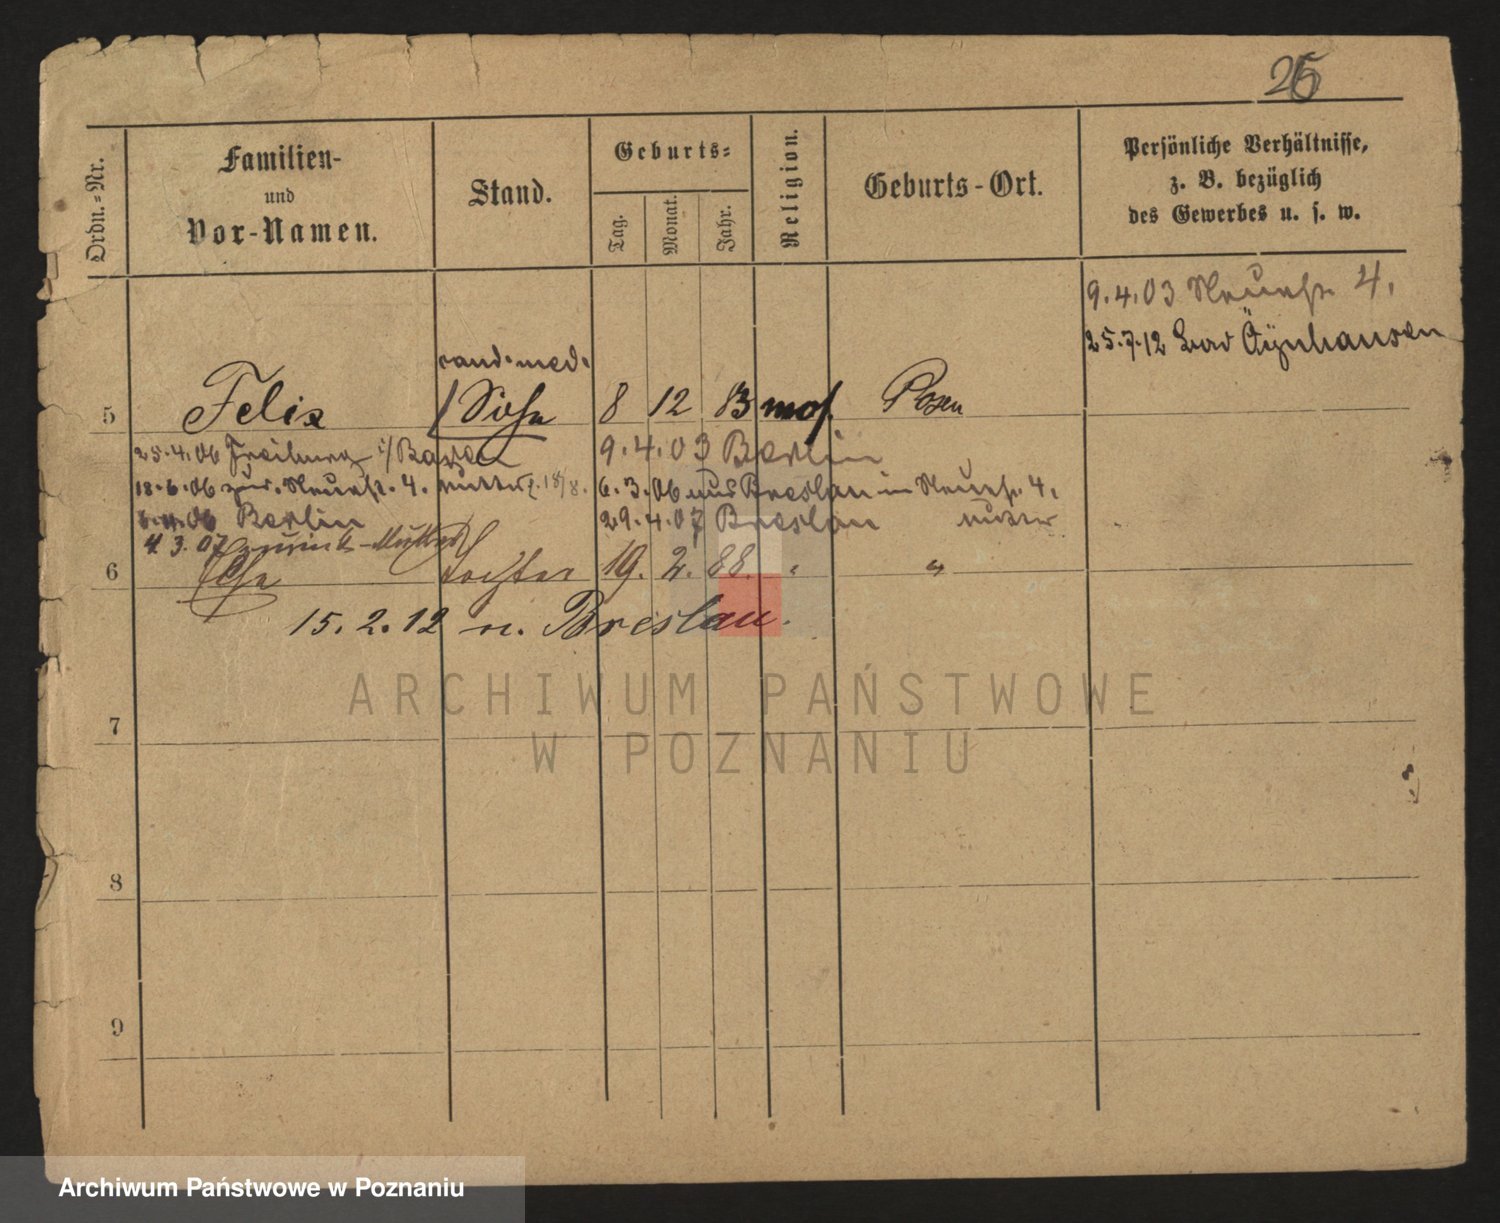 26
Ordn.-Nr.
Familien-
und
Vor-Namen.
Stand.
Geburts-
Tag.
Monat.
Jahr.
Religion.
Geburts-Ort.
Persönliche Verhältnisse,
z. B. bezüglich
des Gewerbes u. s. w.
9.4.03 Neuestr. 4.
25.7.12 Bad Öynhausen
cand. med.
5 Felix Sohn 8 12 83 mos. Posen
25.4.06 Freiburg i/Baden 9.4.03 Berlin
18.6.06 zur. Neuestr. 4. Mutter 6.3.06 aus Breslau in Neuestr. 4.
Berlin 29.4.07 Breslau
4.3.07 zurück Mutter
6 Tochter 19. 2. 88. " "
15.2.12 n. Breslau.
ARCHIWUM PAŃSTWOWE
W POZNANIU
7
8
9
Archiwum Państwowe w Poznaniu